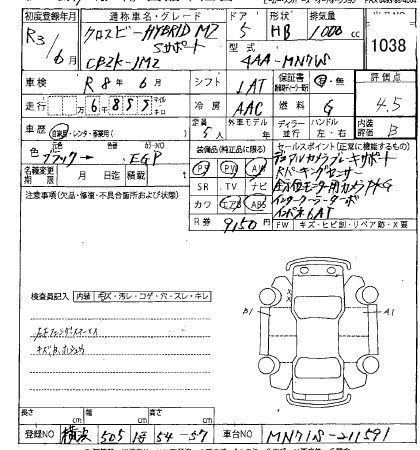 初度登録年月 通称車名・グレード ドア 形状 排気量
R3/6月 クロスビー HYBRID MZ 5 HB 1000cc
Sサポート 型式 1038
CBZK-JMZ 4AA-MN71S
車検 R8年6月 シフト 1AT 保証書 有・無 評価点
走行 万6千855 マイル キロ 冷房 AAC 燃料 G 4.5
車歴 自家用・レンタ・事業用( ) 定員 5人 外車モデル年 ディーラー 並行 ハンドル 左 右 内装評価 B
色 元色 カラーNO ブラック → EGP 装備品(純正品に限る) セールスポイント(正常に機能するもの)
名義変更期限 月 日迄 積載 t PS PW AW デュアルカメラブレーキサポート
注意事項(欠品・修復・不具合箇所および状態) SR TV ナビ Rパーキングセンサー
カワ エアB ABS 全方位モニター用カメラPKG
R券 9150円 インタークーラーターボ
インパネ6AT
FW キズ・ヒビ割・リペア跡・X要
検査員記入 内装 キズ・汚レ・コゲ・穴・スレ・キレ
B1 A1
長さ cm 幅 cm 高さ cm
登録NO 横浜 505 54-57 車台NO MN71S-211591